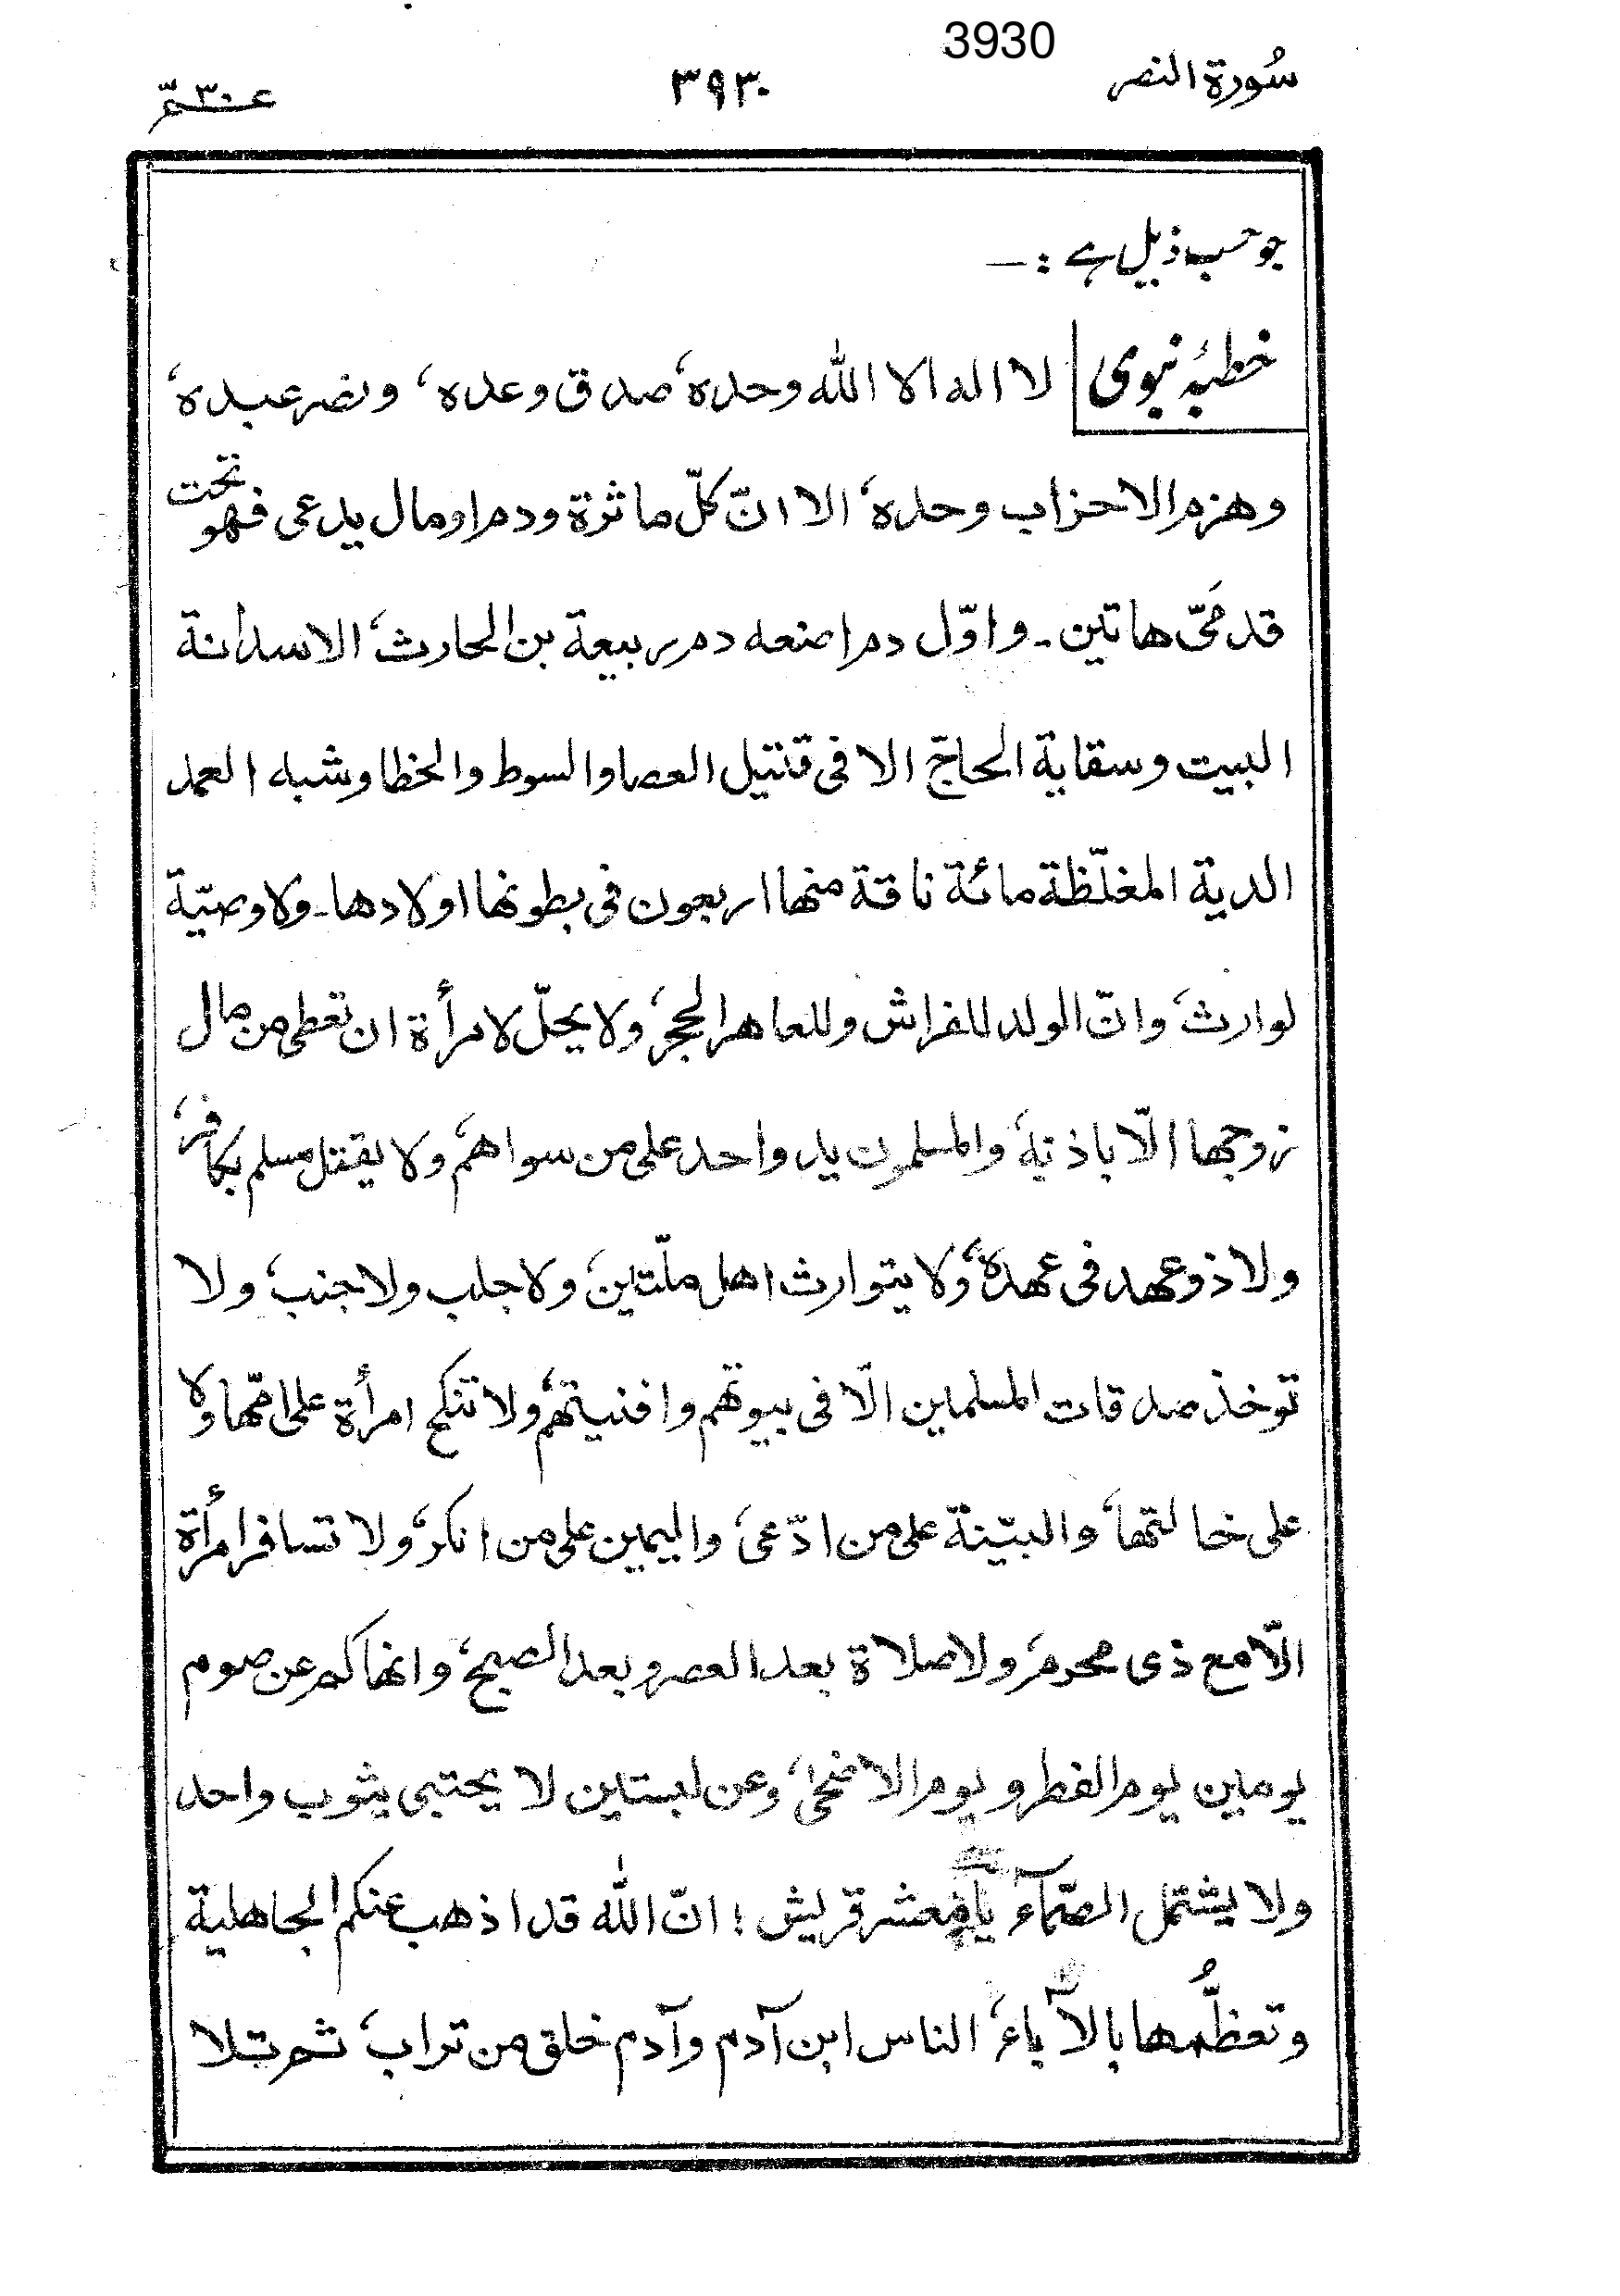 3930
سُورۃ النصر ۳۹۳۰ عمّ ۳۰
جو حسب ذیل ہے :—
خطبۂ نبوی لا اله الا الله وحده، صدق وعده، ونصر عبده،
وهزم الاحزاب وحده، الا انّ كلّ ماثرة ودم او مال يدعى فهو تحت
قدمىّ هاتين۔ واوّل دم اضعه دم ربيعة بن الحارث، الا سدانة
البيت وسقاية الحاجّ الا فى قتيل العصا والسوط والخطا وشبه العمد
الدية المغلّظة مائة ناقة منها اربعون فى بطونها اولادها۔ ولا وصيّة
لوارث، وانّ الولد للفراش وللعاهر الحجر، ولا يحلّ لامرأة ان تعطى من مال
زوجها الّا باذنه، والمسلمون يد واحد على من سواهم، ولا يقتل مسلم بكافر،
ولا ذو عهد فى عهده، ولا يتوارث اهل ملّتين، ولا جلب ولا جنب، ولا
توخذ صدقات المسلمين الّا فى بيوتهم وافنيتهم، ولا تنكح امرأة على امّها ولا
على خالتها، والبيّنة على من ادّعى، واليمين على من انكر، ولا تسافر امرأة
الّا مع ذى محرم، ولا صلاة بعد العصر وبعد الصبح، وانهاكم عن صوم
يومين يوم الفطر ويوم الاضحىٰ، وعن لبستين لا يحتبى بثوب واحد
ولا يشتمل الصّمآء يا معشر قريش! انّ الله قد اذهب عنكم الجاهلية
وتعظُّمها بالآباء، الناس ابن آدم وآدم خلق من تراب، ثم تلا